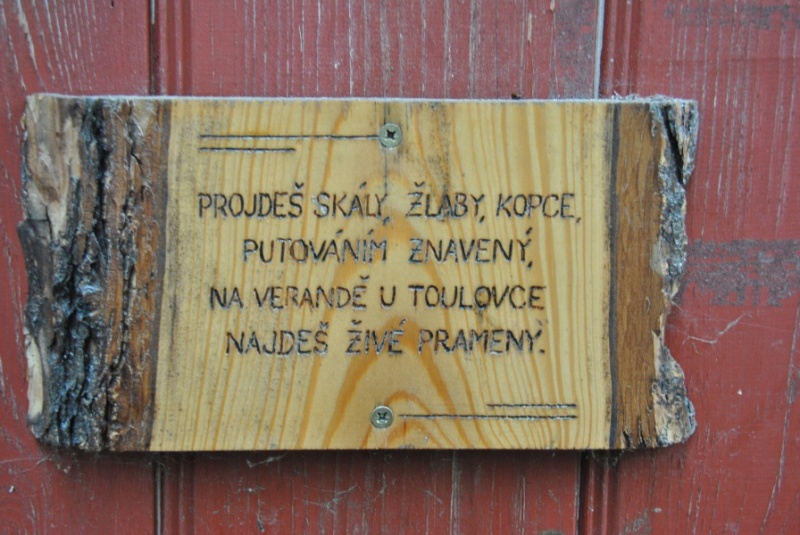 PROJDEŠ SKÁLY, ŽLABY, KOPCE,
PUTOVÁNÍM ZNAVENÝ,
NA VERANDĚ U TOULOVCE
NAJDEŠ ŽIVÉ PRAMENY.